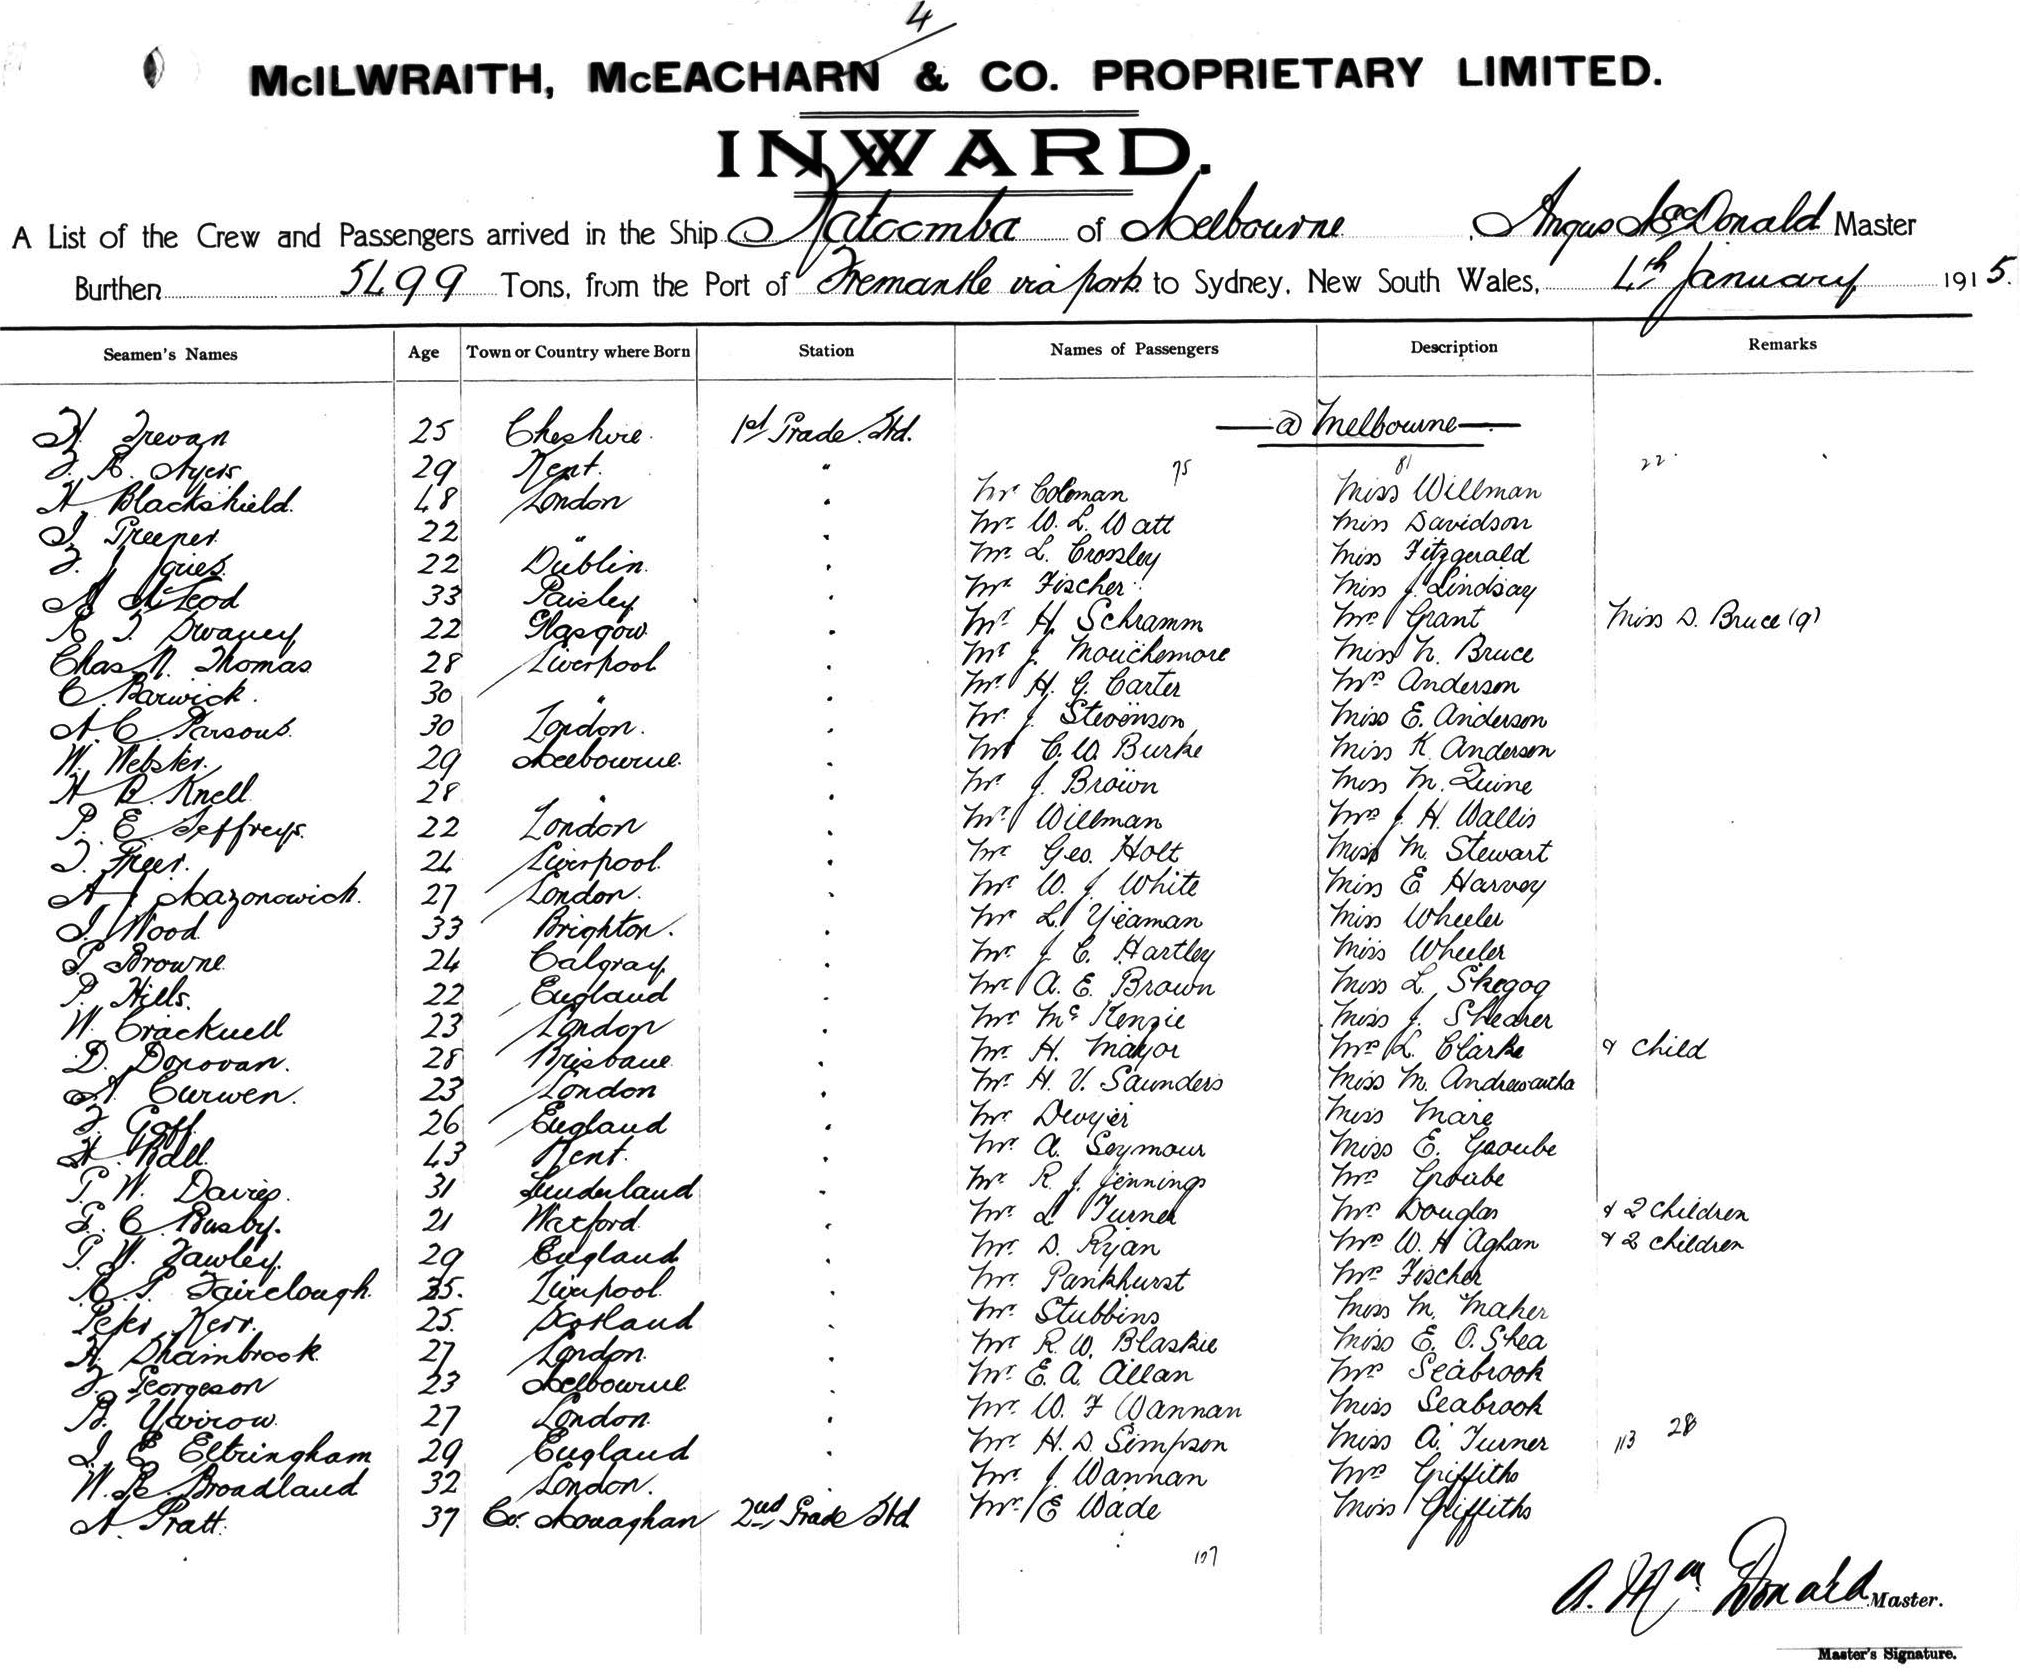 4
McILWRAITH, McEACHARN & CO. PROPRIETARY LIMITED.
INWARD.
A List of the Crew and Passengers arrived in the Ship Katoomba of Melbourne, Angus McDonald Master
Burthen 5499 Tons, from the Port of Fremantle via ports to Sydney, New South Wales, 4th January 1915.
Seamen's Names Age Town or Country where Born Station Names of Passengers Description Remarks
H. Trevan 25 Cheshire. 1st Grade Std. @ Melbourne
F. A. Ayers 29 Kent. " 75 81 22
H Blackshield. 48 London " Mr Coleman Miss Willman
22 " " Mr. W. L. Watt Miss Davidson
22 Dublin. " Mr. L. Crossley Miss Fitzgerald
A. McLeod 33 Paisley " Mr Fischer Miss J. Lindsay
22 Glasgow " Mr. H. Schramm Mrs Grant Miss D. Bruce (9)
Chas N. Thomas 28 Liverpool " Mr J. Mouchemore Miss N. Bruce
C. Barwick. 30 " " Mr. H. G. Carter Mrs Anderson
A. C. Parsons. 30 London. " Mr. J. Stevenson Miss E. Anderson
W. Webster. 29 Melbourne. " Mr C. W. Burke Miss K Anderson
H. R. Knell 28 " " Mr J. Brown Miss M. Quine
P. E. Jeffreys. 22 London " Mr. Willman Mrs J. H. Wallis
Freer. 24 Liverpool. " Mr Geo. Holt Miss M. Stewart
A J Mazonowich. 27 London. " Mr W. J. White Miss E Harvey
J. Wood 33 Brighton. " Mr L. Yeaman Miss Wheeler
Browne 24 Calgray. " Mr. J. C. Hartley Miss Wheeler
P. Hills. 22 England " Mr A. E. Brown Miss L. Skegog
W. Cracknell 23 London " Mr McKenzie Miss J. Shearer
D. Donovan. 28 Brisbane " Mr. H. Mayor Mrs L. Clarke & Child
A. Curwen. 23 London " Mr. H. V. Saunders Miss M. Andrewartha
F. Goff. 26 England " Mr. Dwyer Miss Mare
H. Ball. 43 Kent. " Mr. A. Seymour Miss E. Groube
W. Davies. 31 Sunderland " Mr. R. J. Jennings Mrs Groube
C. Busby. 21 Watford " Mr. L Turner Mrs Douglas & 2 Children
W. Fawley. 29 England " Mr. D. Ryan Mrs W. H Aghan & 2 Children
Fairclough. 25. Liverpool. " Mr. Pankhurst Mrs Fischer
Peter Kerr. 25. Scotland " Mr. Stubbins Miss M. Maher
H. Shambrook. 27 London. " Mr. R. W. Blaskie Miss E. O.Shea
F. Georgeson 23 Melbourne. " Mr. E. A. Allan Mrs Seabrook
B. Yarrow. 27 London. " Mr. W. F Wannan Miss Seabrook
J. E. Eltringham 29 England " Mr. H. D. Simpson Miss A. Turner 113 28
W. Broadland 32 London. " Mr. J. Wannan Mrs Griffiths
A. Pratt. 37 Co. Monaghan 2nd Grade Std. Mr. E Wade Miss Griffiths
107
A. MacDonald Master.
Master's Signature.